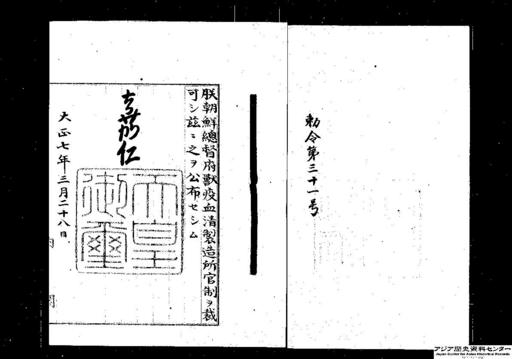 勅令第三十一号
朕朝鮮總督府獸疫血清製造所官制ヲ裁
可シ茲ニ之ヲ公布セシム
嘉仁
天皇
御璽
大正七年三月二十八日
内閣
アジア歴史資料センター
Japan Center for Asian Historical Records